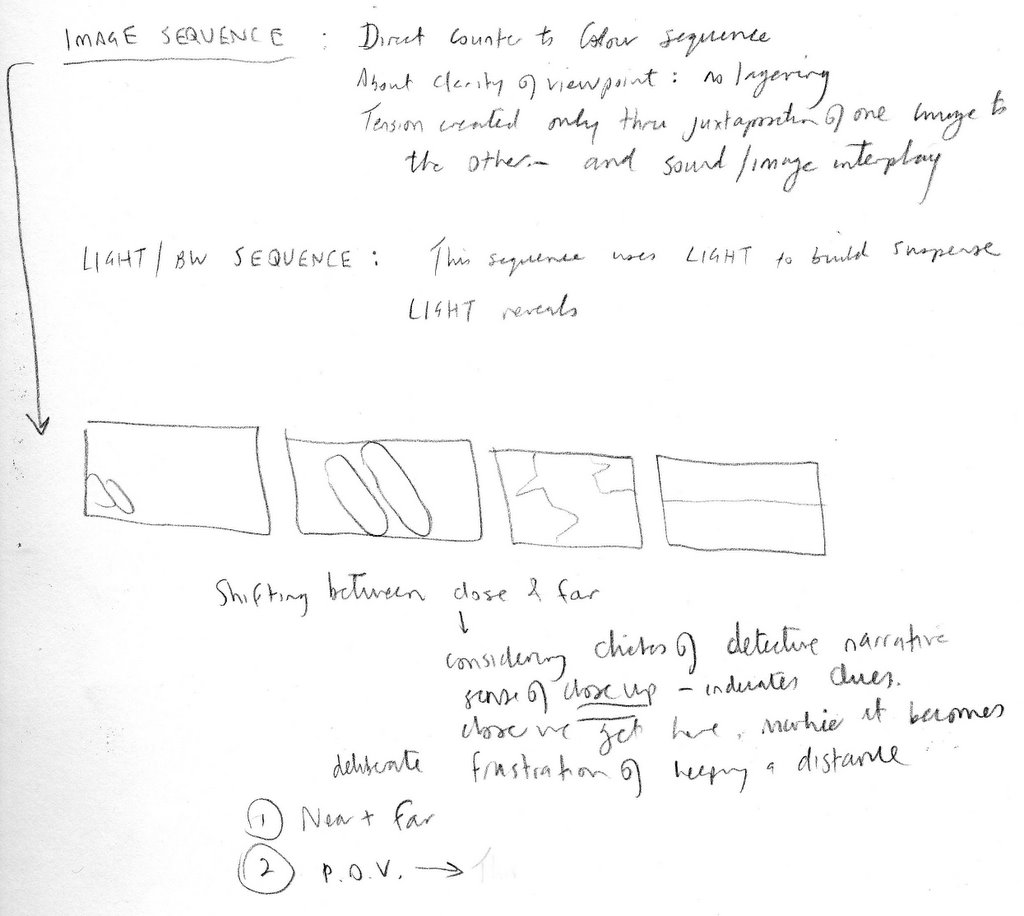 IMAGE SEQUENCE : Direct counter to Colour sequence
About clarity of viewpoint : no layering
Tension created only thru juxtaposition of one image to
the other – and sound / image interplay
LIGHT / BW SEQUENCE : This sequence uses LIGHT to build suspense
LIGHT reveals
Shifting between close & far
considering cliches of detective narrative
sense of close up – indicates clues.
close we get here, it becomes
deliberate frustration of keeping a distance
1 Near + Far
2 P.O.V. → Th